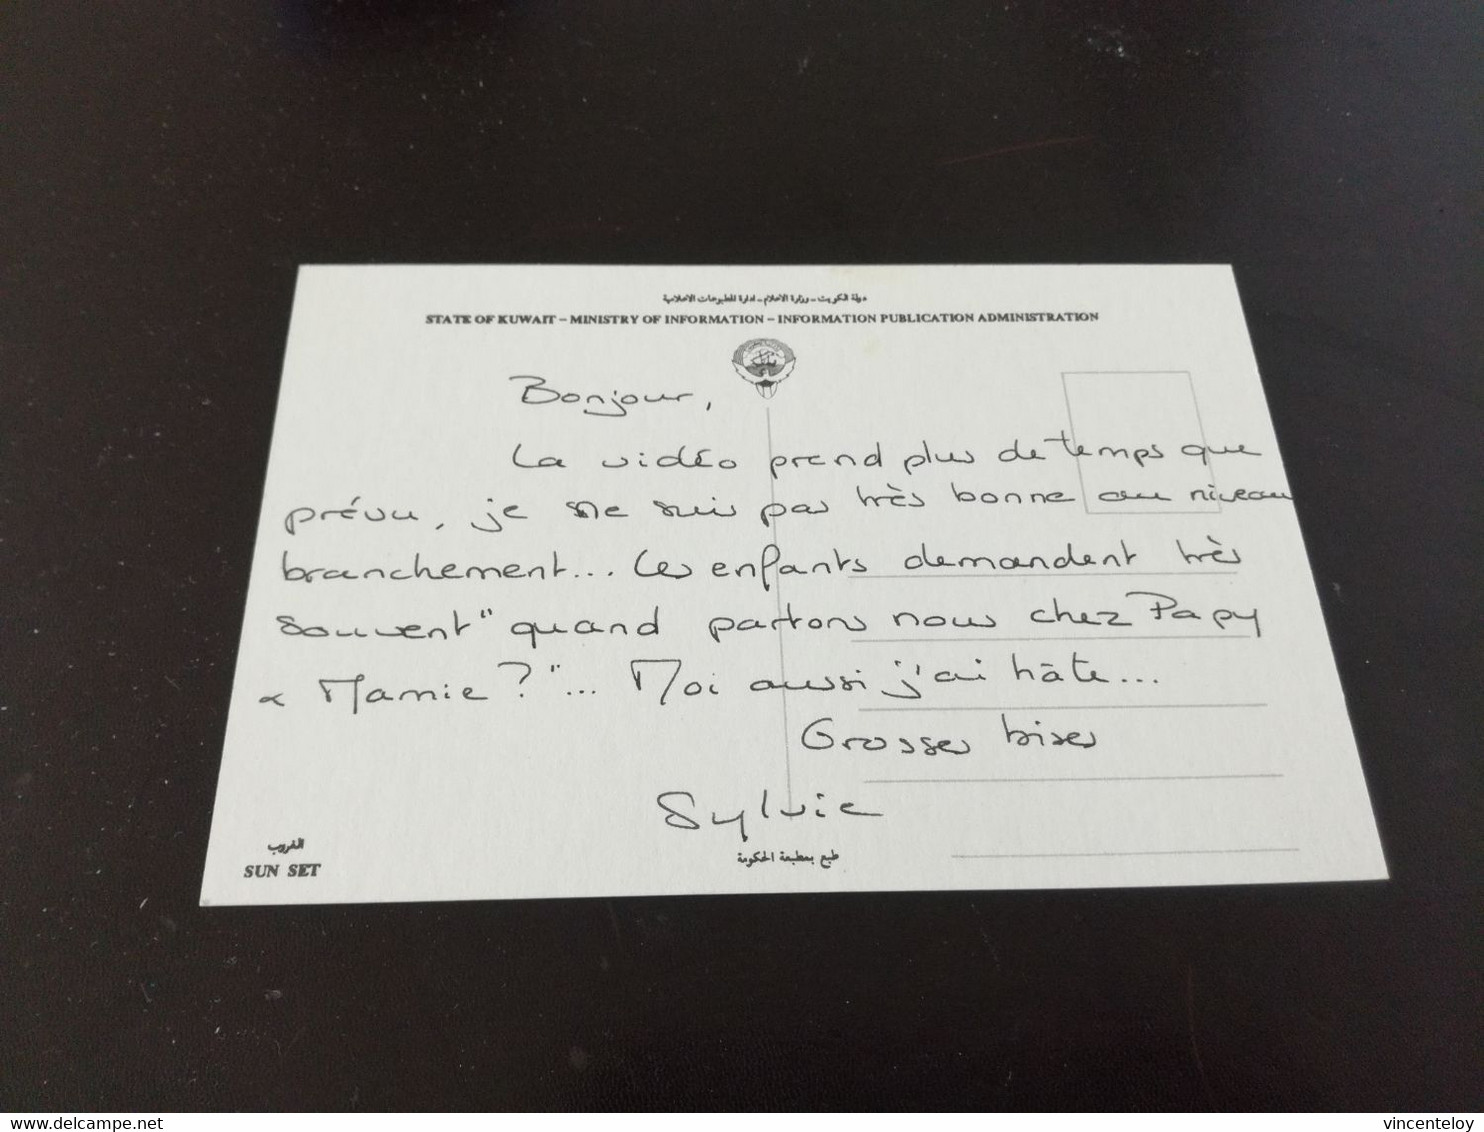 دولة الكويت - وزارة الاعلام - ادارة المطبوعات الاعلامية
STATE OF KUWAIT - MINISTRY OF INFORMATION - INFORMATION PUBLICATION ADMINISTRATION
Bonjour,
La vidéo prend plus de temps que
prévu, je ne suis pas très bonne au niveau
branchement... Les enfants demandent très
souvent "quand partons nous chez Papy
& Mamie ?"... Moi aussi j'ai hâte...
Grosses bises
Sylvie
الغروب
SUN SET
طبع بمطبعة الحكومة
delcampe.net
vincenteloy